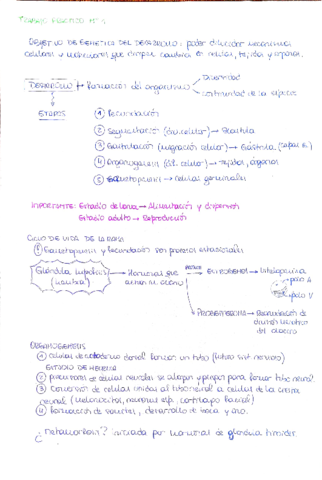 TRABAJO PRÁCTICO Nº 1
OBJETIVO DE GENETICA DEL DESARROLLO: poder dilucidar mecanismos
celulares y moleculares que producen cambios en celulas, tejidos y organos.
DESARROLLO → formacion del organismo
Diversidad
continuidad de la especie
ETAPAS
① Fecundación
② Segmentación (div. celular) → Blástula
③ Gastrulación (migración celular) → Gástrula (capas E.)
④ Organogénesis (dif. celular) → tejidos, órganos
⑤ Gametogénesis → celulas germinales
IMPORTANTE: Estadio de larva → Alimentación y dispersión
Estadio adulto → Reproducción
CICLO DE VIDA DE LA RANA
⑤ Gametogénesis y fecundación son procesos estacionales
Glándula hipófisis → Hormonas que
actúan en ovario
ESTRÓGENOS → Vitelogenina
polo A
polo V
PROGESTERONA → Reanudación de
división meiótica
del ovocito
ORGANOGENESIS
① células de notocorda dorsal forman un tubo (futuro sist nervioso)
ESTADIO DE NEURULA
② precursoras de celulas neurales se alargan y pliegan para formar tubo neural.
③ Conversion de celulas unidas al tubo neural a celulas de la cresta
neural (melanocitos, neuronas esp., cartilago facial)
④ Formación de somitas, desarrollo de boca y ano.
¿Metamorfosis? iniciada por hormonas de glandula tiroides.